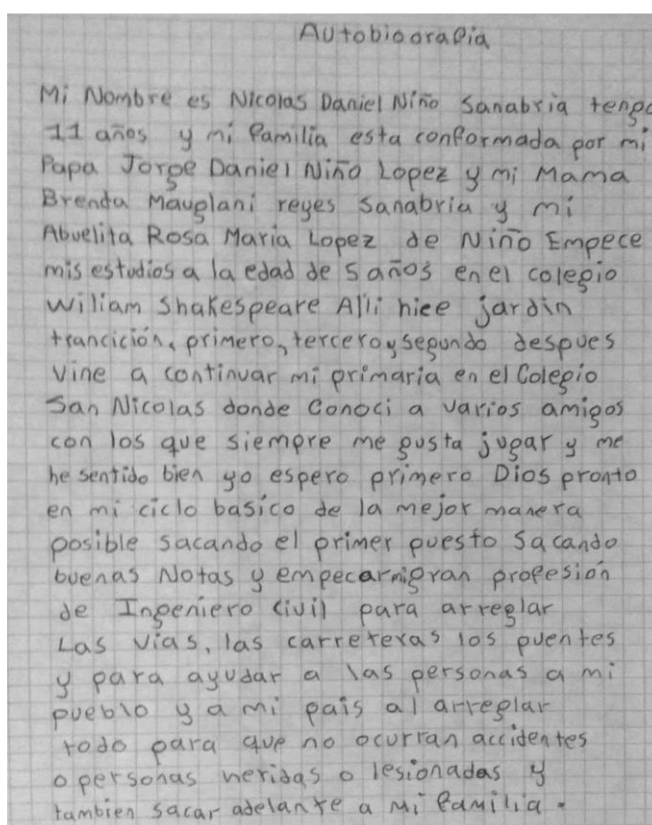 Autobiografia
Mi Nombre es Nicolas Daniel Niño Sanabria tengo
11 años y mi familia esta conformada por mi
Papa Jorge Daniel Niño Lopez y mi Mama
Brenda Mauglani reyes Sanabria y mi
Abuelita Rosa Maria Lopez de Niño Empece
mis estudios a la edad de 5 años en el colegio
William Shakespeare Alli hice jardin
trancición, primero, tercero y segundo despues
vine a continuar mi primaria en el Colegio
San Nicolas donde Conoci a varios amigos
con los que siempre me gusta jugar y me
he sentido bien yo espero primero Dios pronto
en mi ciclo basico de la mejor manera
posible sacando el primer puesto Sacando
buenas Notas y empecar mi gran profesión
de Ingeniero Civil para arreglar
Las vias, las carreteras los puentes
y para ayudar a las personas a mi
pueblo y a mi pais al arreglar
todo para que no ocurran accidentes
o personas heridas o lesionadas y
tambien sacar adelante a Mi familia.